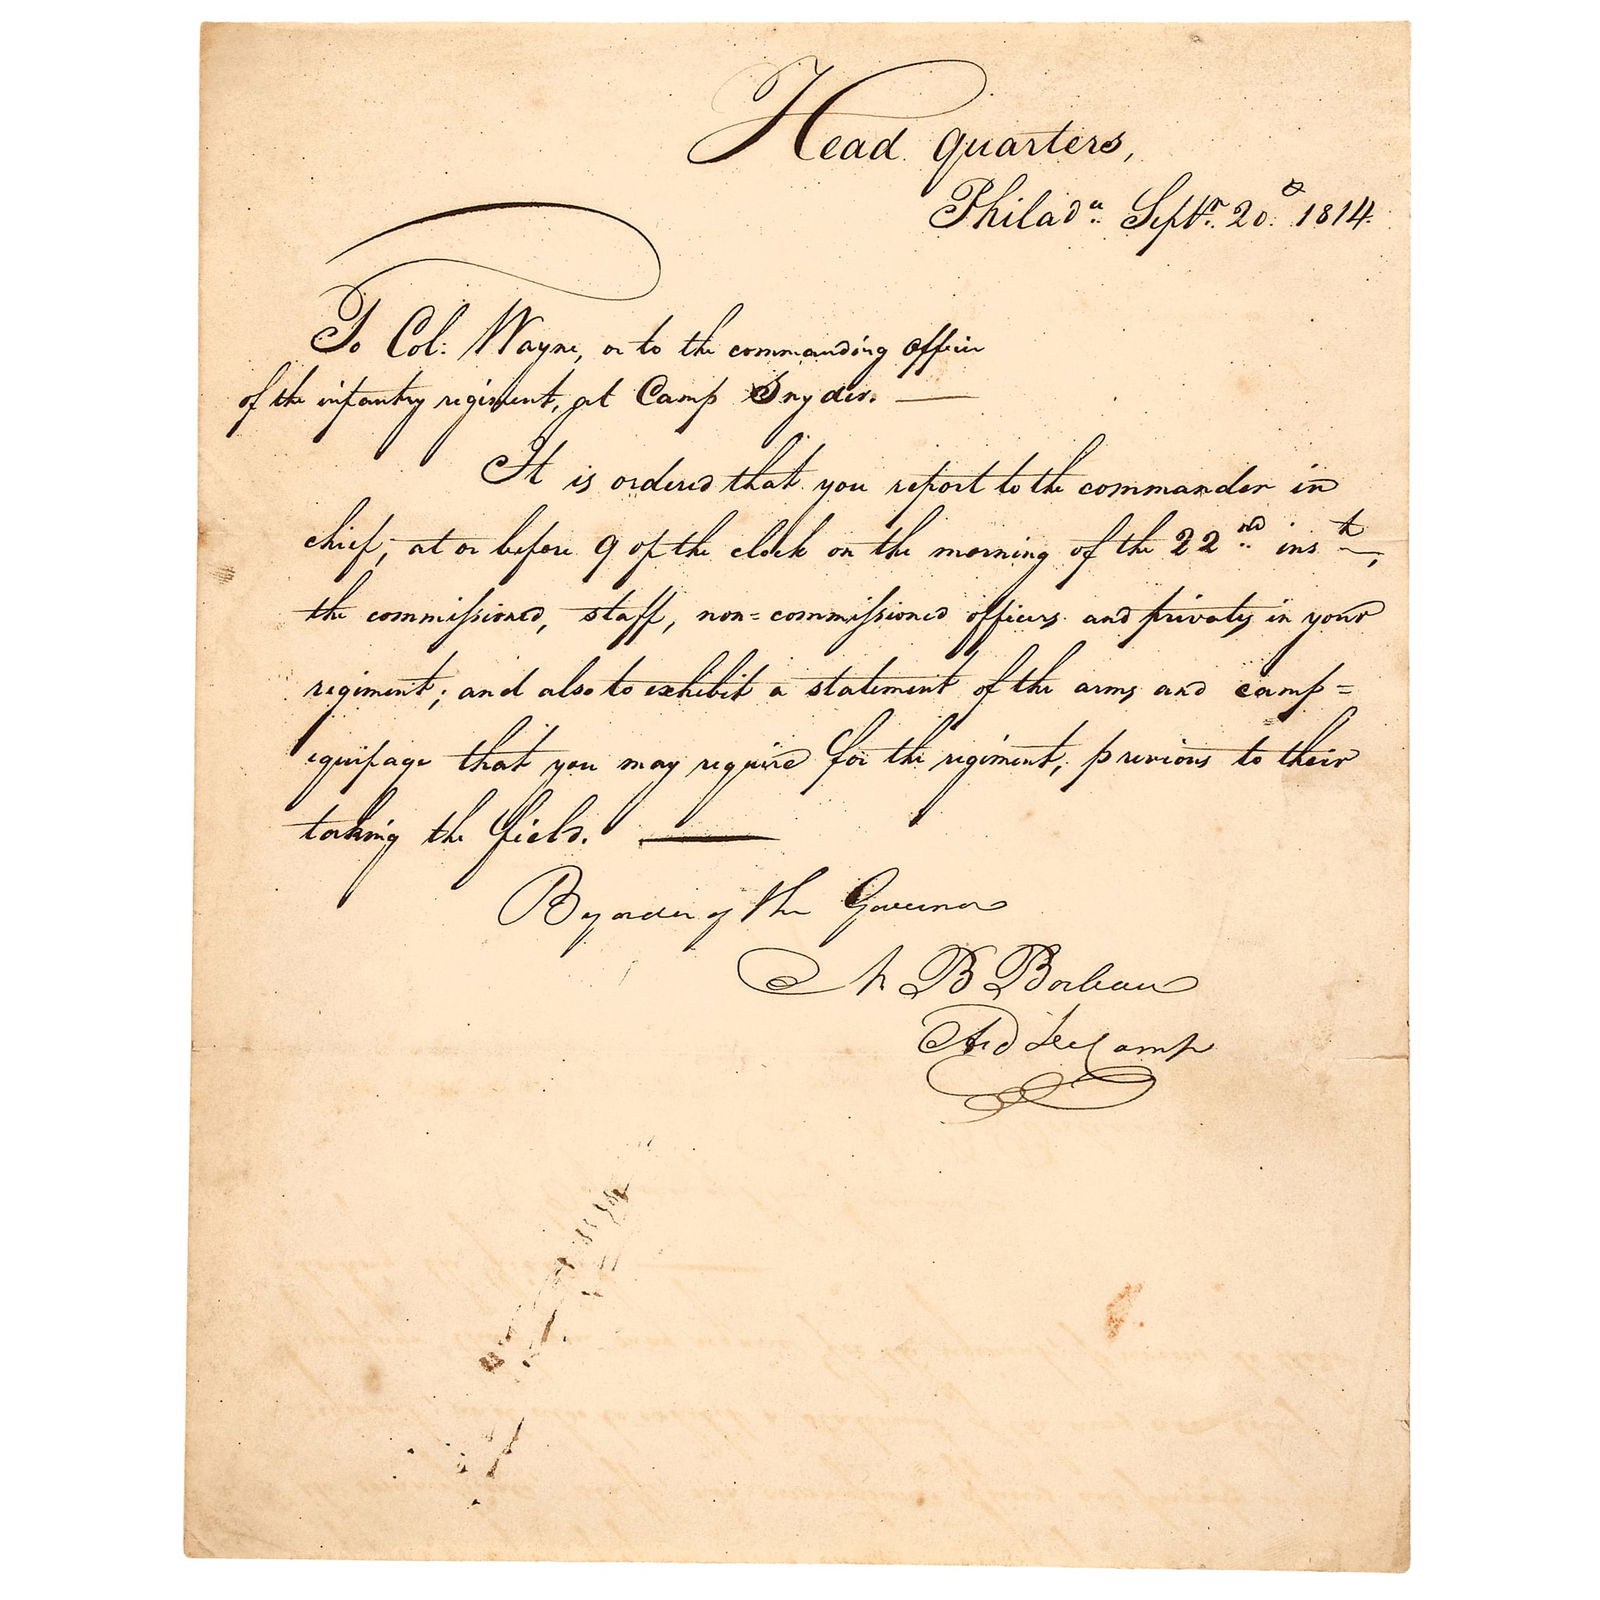 Head quarters,
Philad.a Septr. 20. 1814.
To Col: Wayne, or to the commanding officer
of the infantry regiment, at Camp Snyder. —
It is ordered that you report to the commander in
chief, at or before 9 of the clock on the morning of the 22nd inst,
the commissioned, staff, non=commissioned officers and privates in your
regiment; and also to exhibit a statement of the arms and camp=
equipage that you may require for the regiment, previous to their
taking the field. —
By order of the Governor
N B Boileau
Aid de Camp